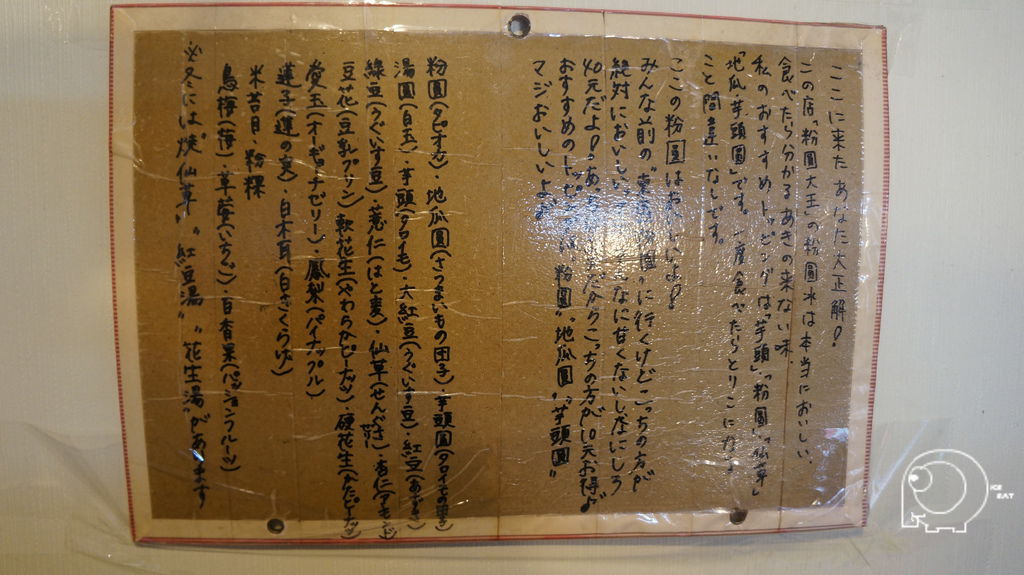 ここに来たあなた大正解!
この店「粉圓大王」の粉圓氷は本当においしい、
食べたら分かるあきの来ない味
私のおすすめトッピングは「芋頭」「粉圓」「仙草」
「地瓜・芋頭圓」です。一度食べたらとりこになる
こと間違いなしです。
ここの粉圓はおいしいよ!
みんな前の"東 粉圓"に行くけどこっちの方が
絶対においしい なに甘くないしなにしろ
40元だよ!あっち だからこっちの方が10元お得♪
おすすめのトッピングは"粉圓"、"地瓜圓"、"芋頭圓"
マジおいしいよ
粉圓(タピオカ)・地瓜圓(さつまいもの団子)・芋頭圓(タロイモの団子)
湯圓(白玉)・芋頭(タロイモ)・大紅豆(うぐいす豆)・紅豆(あずき)
綠豆(うぐいす豆)・薏仁(はと麦)・仙草(せんぐさ)・杏仁(アーモンド)
豆花(豆乳プリン)・軟花生(やわらかピーナッツ)・硬花生(かたピーナッツ)
愛玉(オーギョーチゼリー)・鳳梨(パイナップル)
蓮子(蓮の実)・白木耳(白きくらげ)
米苔目・粉粿
烏梅(梅)・草莓(いちご)・百香果(パッションフルーツ)
※冬には"燒仙草"、"紅豆湯"、"花生湯"があります
ICE
EAT